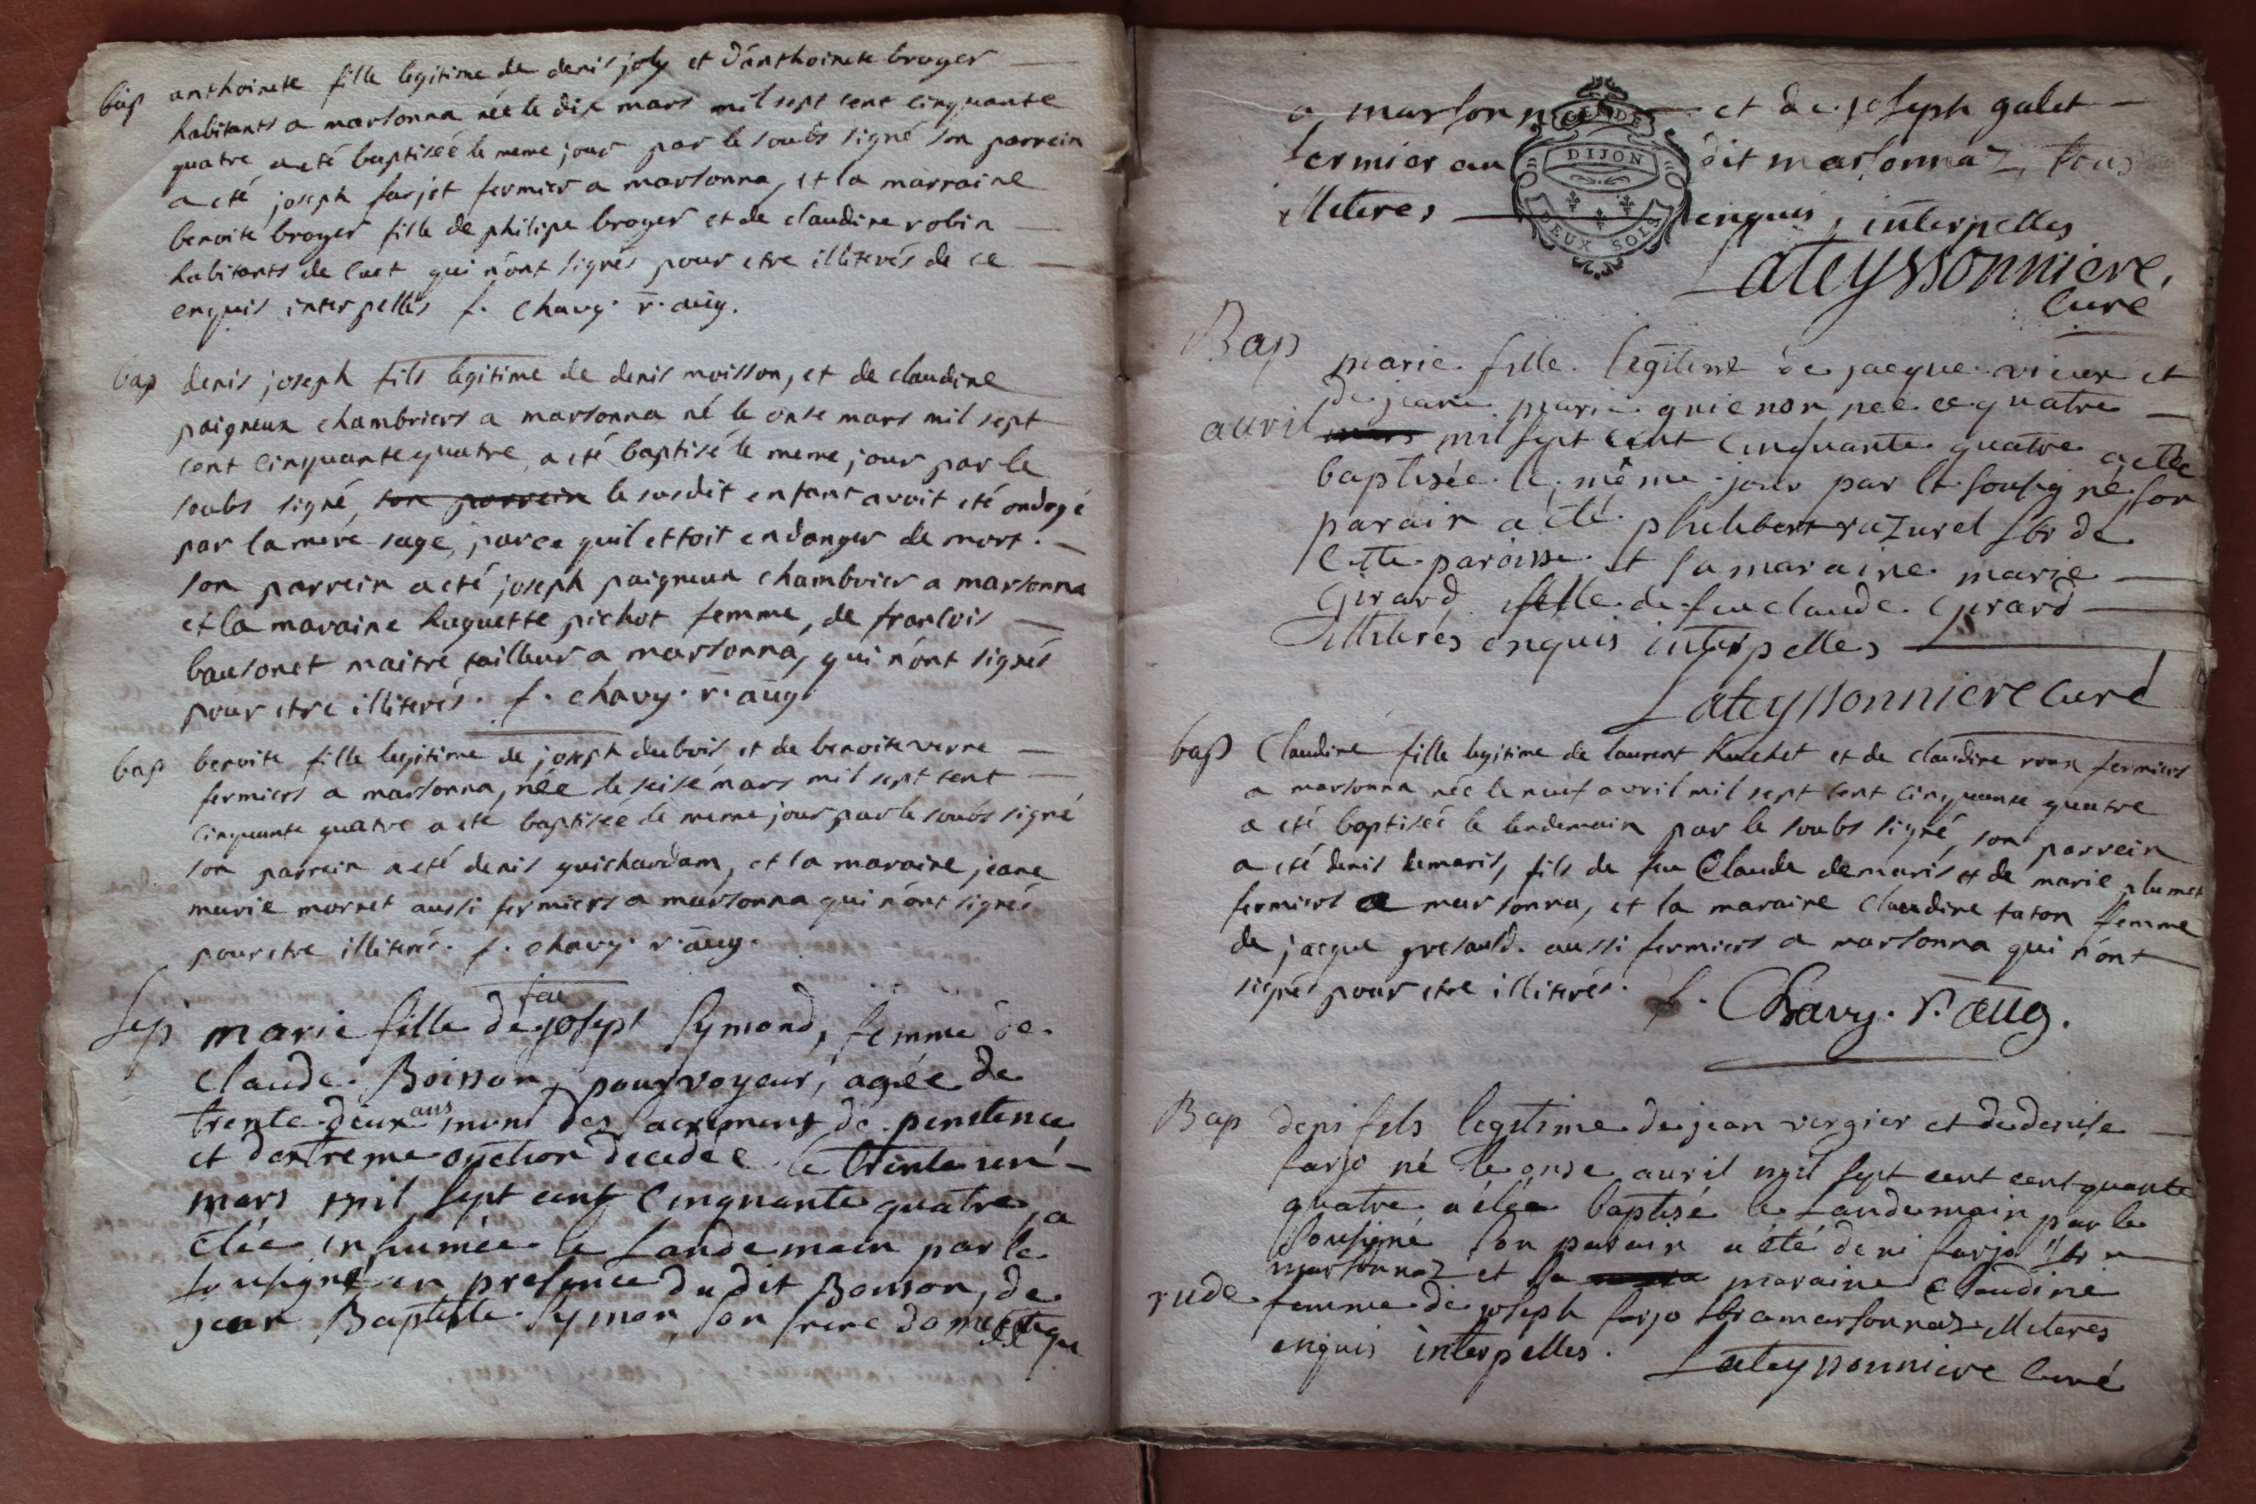 bap anthoinete fille legitime de denis joly et d'anthoinete broyer
habitants a marsonna née le dix mars mil sept cent cinquante
quatre a eté baptisée le meme jour par le soubs signé son parrein
a eté joseph farjet fermier a marsonna, et la marraine
benoite broyer fille de philipe broyer et de claudine robin
habitants de cuet qui n'ont signés pour etre illiterés de ce
enquis interpellés f. chavy. r. aug.
bap denis joseph fils legitime de denis moisson, et de claudine
paigneux chambriers a marsonna né le onse mars mil sept
cent cinquante quatre, a eté baptisé le meme jour par le
soubs signé, son parrein le susdit enfant avoit eté ondoyé
par la mere sage, parce quil ettoit en danger de mort.
son parrein a eté joseph paigneux chambrier a marsonna
et la maraine huguette pichot femme, de francois
bausonet maitre tailleur a marsonna, qui n'ont signés
pour etre illiterés. f. chavy. r. aug.
bap benoite fille legitime de joseph dubois, et de benoite verne
fermiers a marsonna, née le seise mars mil sept cent
cinquante quatre a eté baptisée le meme jour par le soubs signé
son parrein a eté denis guichardam, et la maraine jeane
marie mornet aussi fermiers a marsonna qui n'ont signés
pour etre illiterés. f. chavy. r. aug.
feu
Sep marie fille de joseph Symond, femme de
Claude Boisson, pourvoyeur, agée de
trente deux ans muni des sacrements de penitence
et dextreme onction decedée le trente un
mars mil sept cent cinquante quatre, a
étée inhumée le landemain par le
sousigné en presence du dit Boisson, de
jean Baptiste Symon son frere domestique
a marsonna et de joseph galet
fermier au dit marsonnaz, tous
illiteres enquis, interpelles
Lateyssonniere,
curé
GEN. DE DIJON
DEUX SOLS
Bap marie fille legitime de jacque vieux et
de jeane marie guienon née ce quatre
avril mars mil sept cent cinquante quatre a etée
baptisée le même jour par le sousigné son
parain a été philibert razurel fbr de
cette paroisse et sa maraine marie
Girard fille de feu claude Girard
illiterés enquis interpelles
Lateyssonniere curé
bap Claudine fille legitime de laurent huchet et de claudine roux fermiers
a marsonna née le neuf avril mil sept cent cinquante quatre
a eté baptisée le lendemain par le soubs signé, son parrein
a eté denis demaris, fils de feu Claude demaris et de marie plumet
fermiers a marsonna, et la maraine claudine taton femme
de jacque gresauld. aussi fermiers a marsonna qui n'ont
signés pour etre illiterés. f. Chavy. r. aug.
Bap deni fils legitime de jean vergier et de denise
farjo né le onse avril mil sept cent cenquante
quatre a étée baptisé le Landemain par le
sousigné son parain a été deni farjo fbr a
marsonnaz et la maraine Claudine
rude femme de joseph farjo fbr a marsonnaz illiteres
enquis interpelles. Lateyssonniere curé